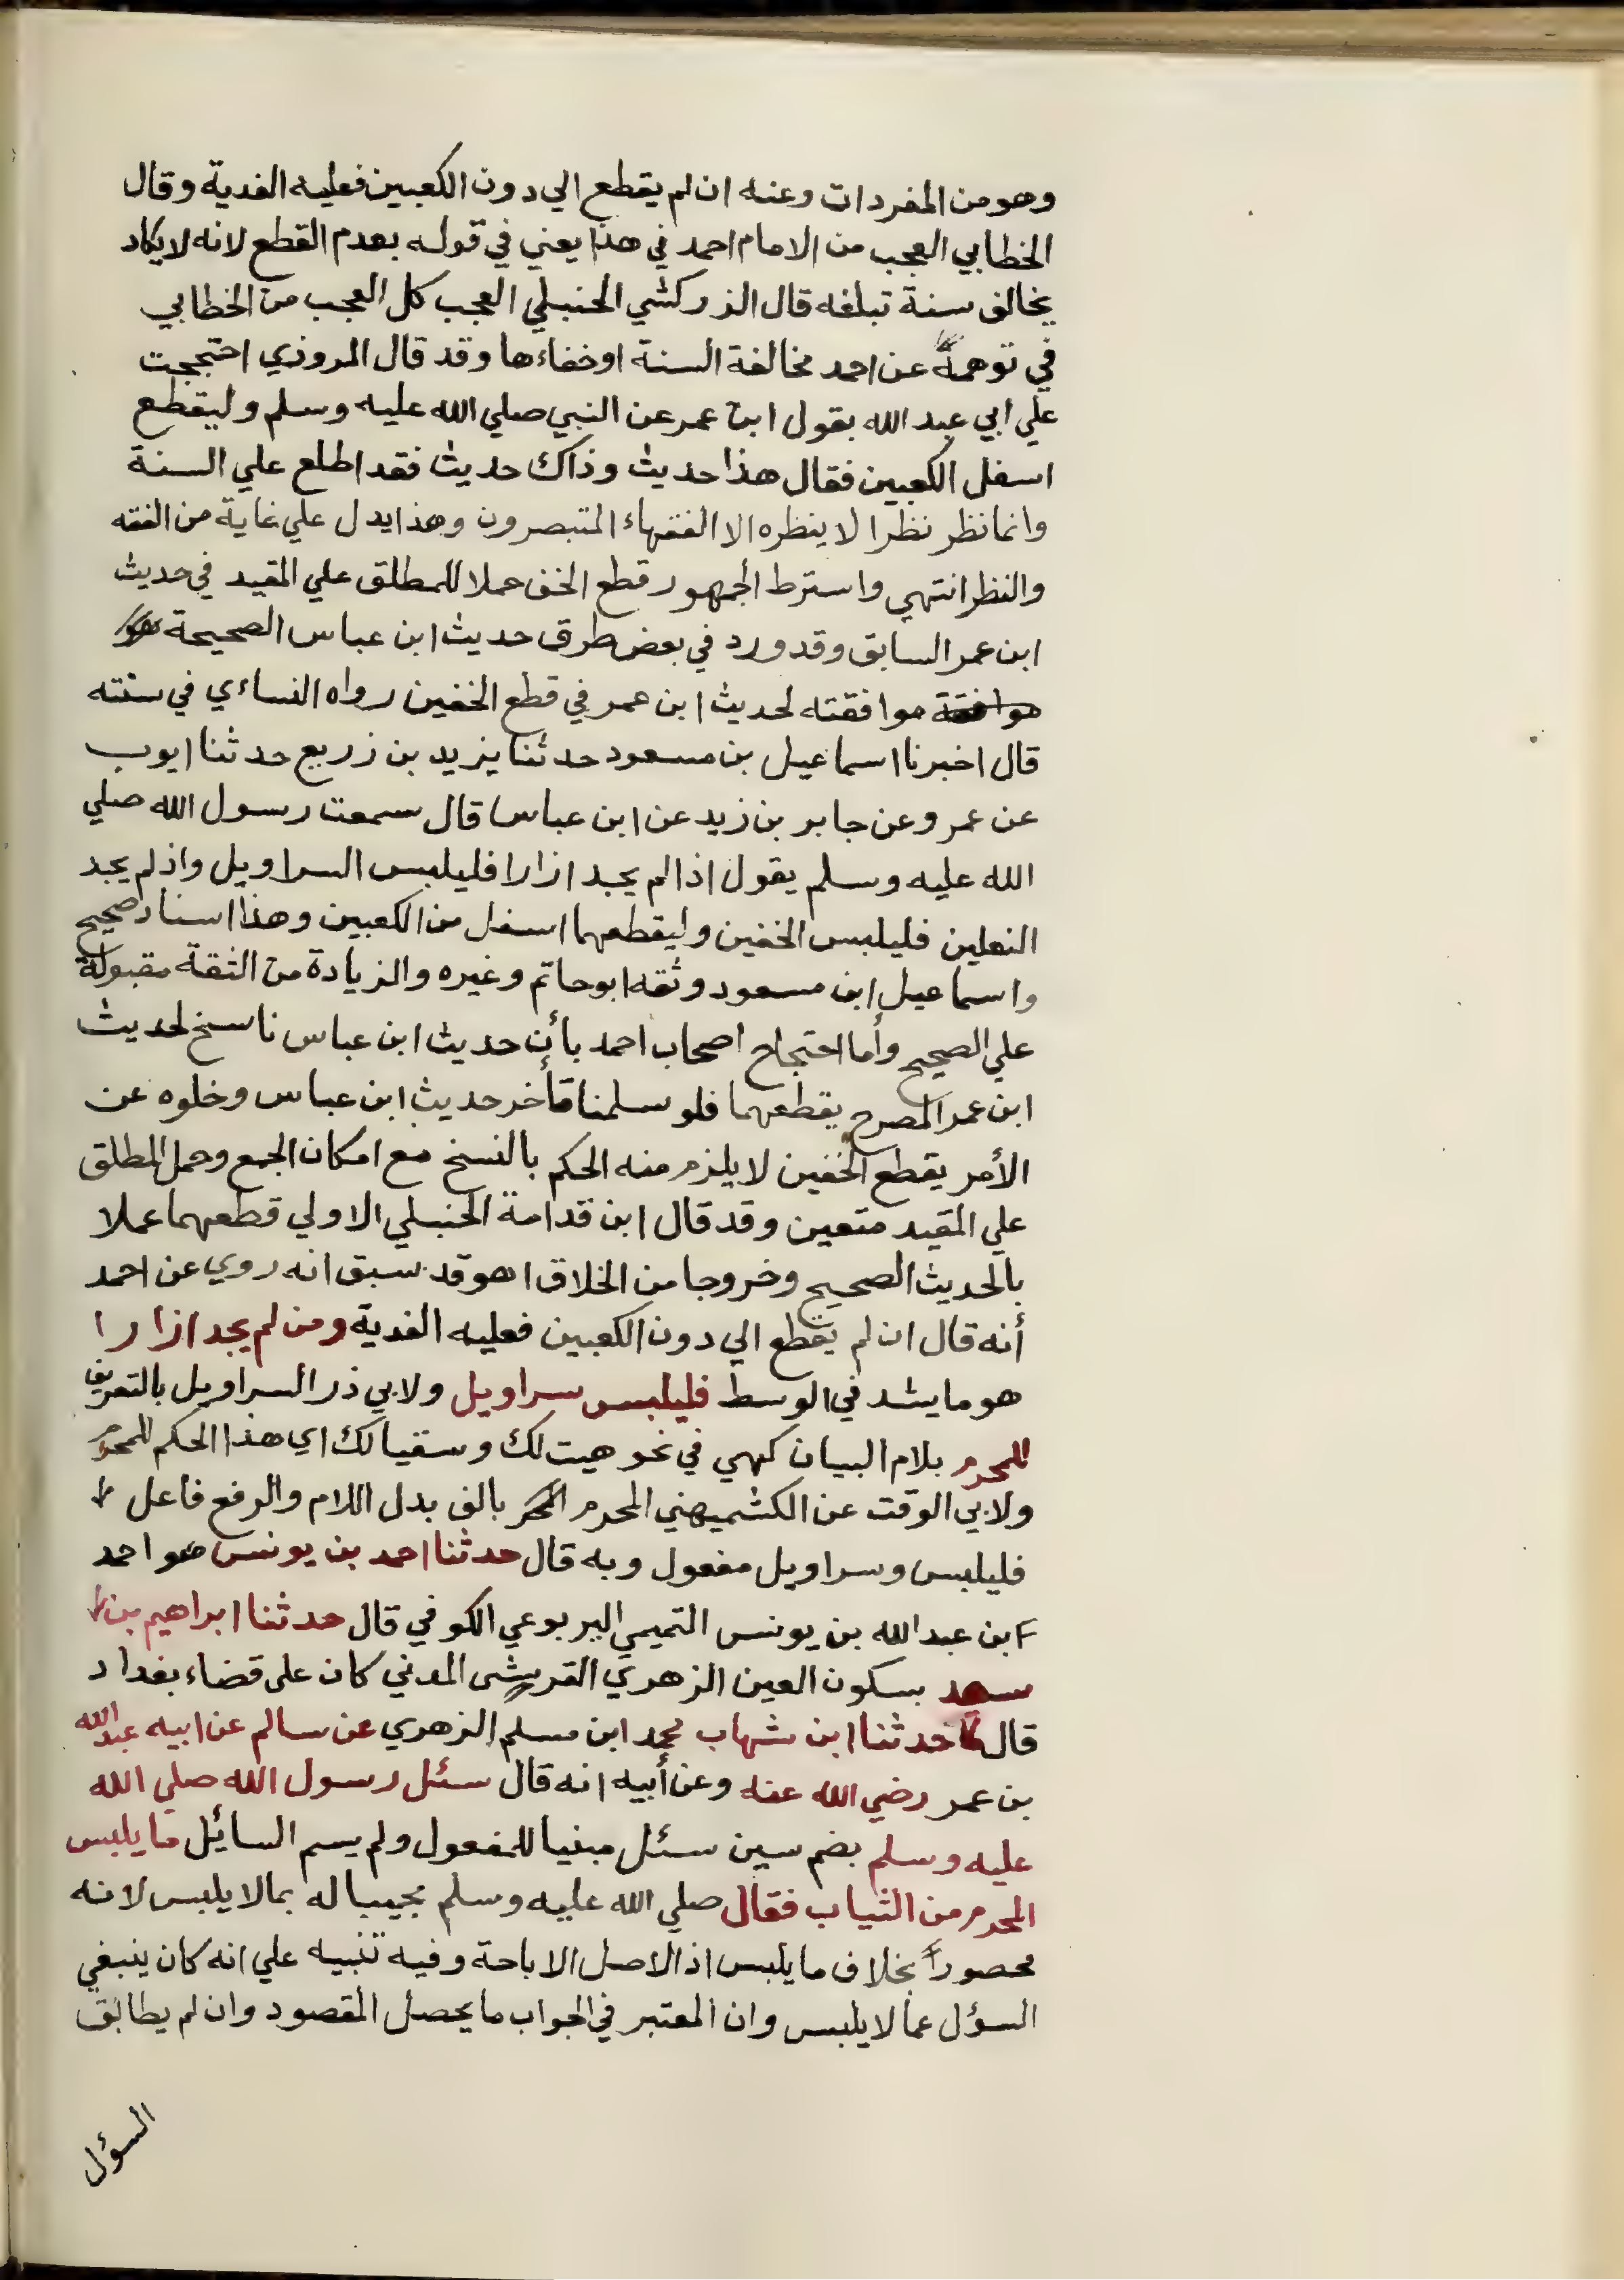 وهو من المفردات وعنه ان لم يقطع الي دون الكعبين فعليه الفدية وقال
الخطابي العجب من الامام احمد في هذا يعني في قوله بعدم القطع لانه لا يكاد
يخالف سنة تبلغه قال الزركشي الحنبلي العجب كل العجب من الخطابي
في توهمه عن احمد مخالفة السنة او خفاءها وقد قال المروزي احتججت
علي ابي عبد الله بقول ابن عمر عن النبي صلي الله عليه وسلم وليقطع
اسفل الكعبين فقال هذا حديث وذاك حديث فقد اطلع علي السنة
وانما نظر نظرا لا ينظره الا الفقهاء المتبصرون وهذا يدل علي غاية من الفقه
والنظر انتهي واسترط الجمهور قطع الخف حملا للمطلق علي المقيد في حديث
ابن عمر السابق وقد ورد في بعض طرق حديث ابن عباس الصحيحة
موافقة موافقته لحديث ابن عمر في قطع الخفين رواه النساءي في سننه
قال اخبرنا اسماعيل بن مسعود حدثنا يزيد بن زريع حدثنا ايوب
عن عمرو عن جابر بن زيد عن ابن عباس قال سمعت رسول الله صلي
الله عليه وسلم يقول اذا لم يجد ازارا فليلبس السراويل واذ لم يجد
النعلين فليلبس الخفين وليقطعهما اسفل من الكعبين وهذا اسناد صحيح
واسماعيل ابن مسعود وثقه ابو حاتم وغيره والزيادة من الثقة مقبولة
علي الصحيح وأما احتجاج اصحاب احمد بأن حديث ابن عباس ناسخ لحديث
ابن عمر المصرح يقطعهما فلو سلمنا تأخر حديث ابن عباس وخلوه عن
الأمر يقطع الخفين لا يلزم منه الحكم بالنسخ مع امكان الجمع وحمل المطلق
علي المقيد متعين وقد قال ابن قدامة الحنبلي الاولي قطعهما عملا
بالحديث الصحيح وخروجا من الخلاق اهوقد سبق انه روي عن احمد
أنه قال ان لم يقطع الي دون الكعبين فعليه الفدية ومن لم يجد ازارا
هو ما يشد في الوسط فليلبس سراويل ولابي ذر السراويل بالتعريف
للمحرم بلام البيان كهي في نحو هيت لك وسقيا لك اي هذا الحكم للمحرم
ولابي الوقت عن الكشميهني المحرم بالف بدل اللام والرفع فاعل
فليلبس وسراويل مفعول وبه قال حدثنا احمد بن يونس هو احمد
ابن عبد الله بن يونس التميمي اليربوعي الكوفي قال حدثنا ابراهيم بن
سعد بسكون العين الزهري القريشى المدني كان على قضاء بغداد
قال حدثنا ابن شهاب محمد ابن مسلم الزهري عن سالم عن ابيه عبد الله
بن عمر رضي الله عنه وعن أبيه انه قال سئل رسول الله صلي الله
عليه وسلم بضم سين سئل مبنيا للمفعول ولم يسم السائل ما يلبس
المحرم من الثياب فقال صلي الله عليه وسلم مجيبا له بمالا يلبس لانه
محصورا بخلاف ما يلبس اذ الاصل الاباحة وفيه تنبيه علي انه كان ينبغي
السؤل عما لا يلبس وان المعتبر في الجواب ما يحصل المقصود وان لم يطابق
السؤل